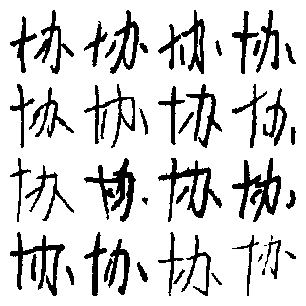 协协协协
协协协协
协协协协
协协协协